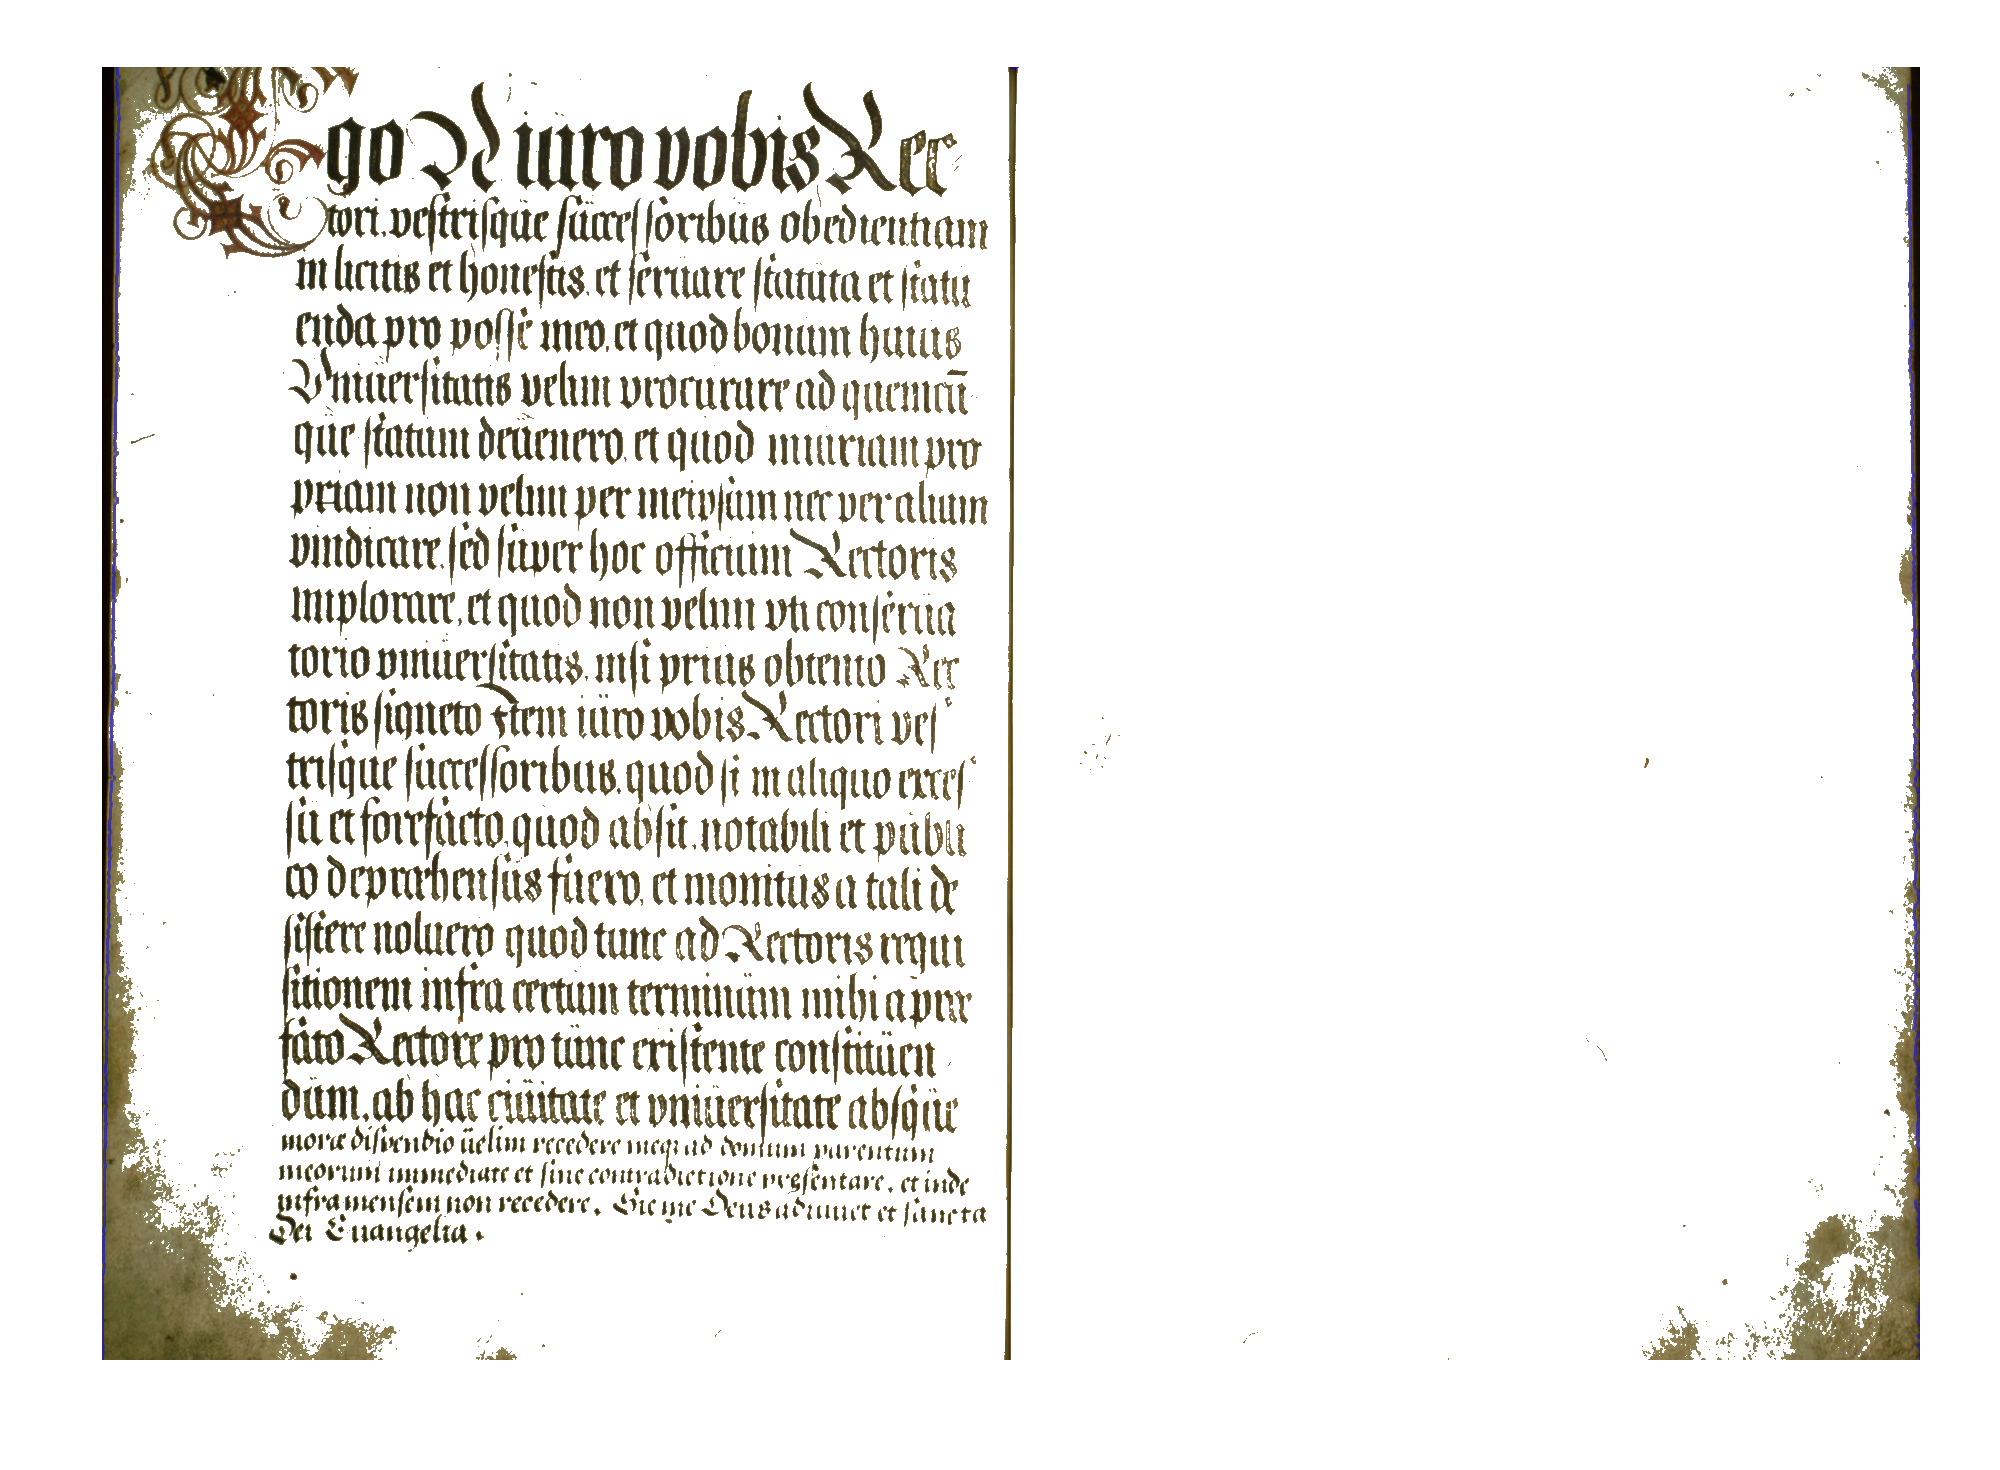 Ego N iuro vobis Rec
tori, vestrisque successoribus obedientiam
in licitis et honestis, et seruare statuta et statu
enda pro posse meo, et quod bonum huius
Vniuersitatis velim procurare ad quemcū
que statum deuenero, et quod iniuriam pro
priam non velim per meipsum nec per alium
vindicare, sed super hoc officium Rectoris
implorare, et quod non velim vti conserua
torio vniuersitatis, nisi prius obtento Rec
toris signeto Item iuro vobis Rectori ves
trisque successoribus, quod si in aliquo exces
su et forefacto, quod absit, notabili et publi
co depræhensus fuero, et monitus a tali de
sistere noluero quod tunc ad Rectoris requi
sitionem infra certum terminum mihi a præ
fato Rectore pro tunc existente constituen
dum, ab hac ciuitate et vniuersitate absque
moræ dispendio uelim recedere meq; ad domum parentum
meorum immediate et sine contradictione pressentare, et inde
infra mensem non recedere. Sic me Deus adiuuet et sancta
Dei Euangelia.